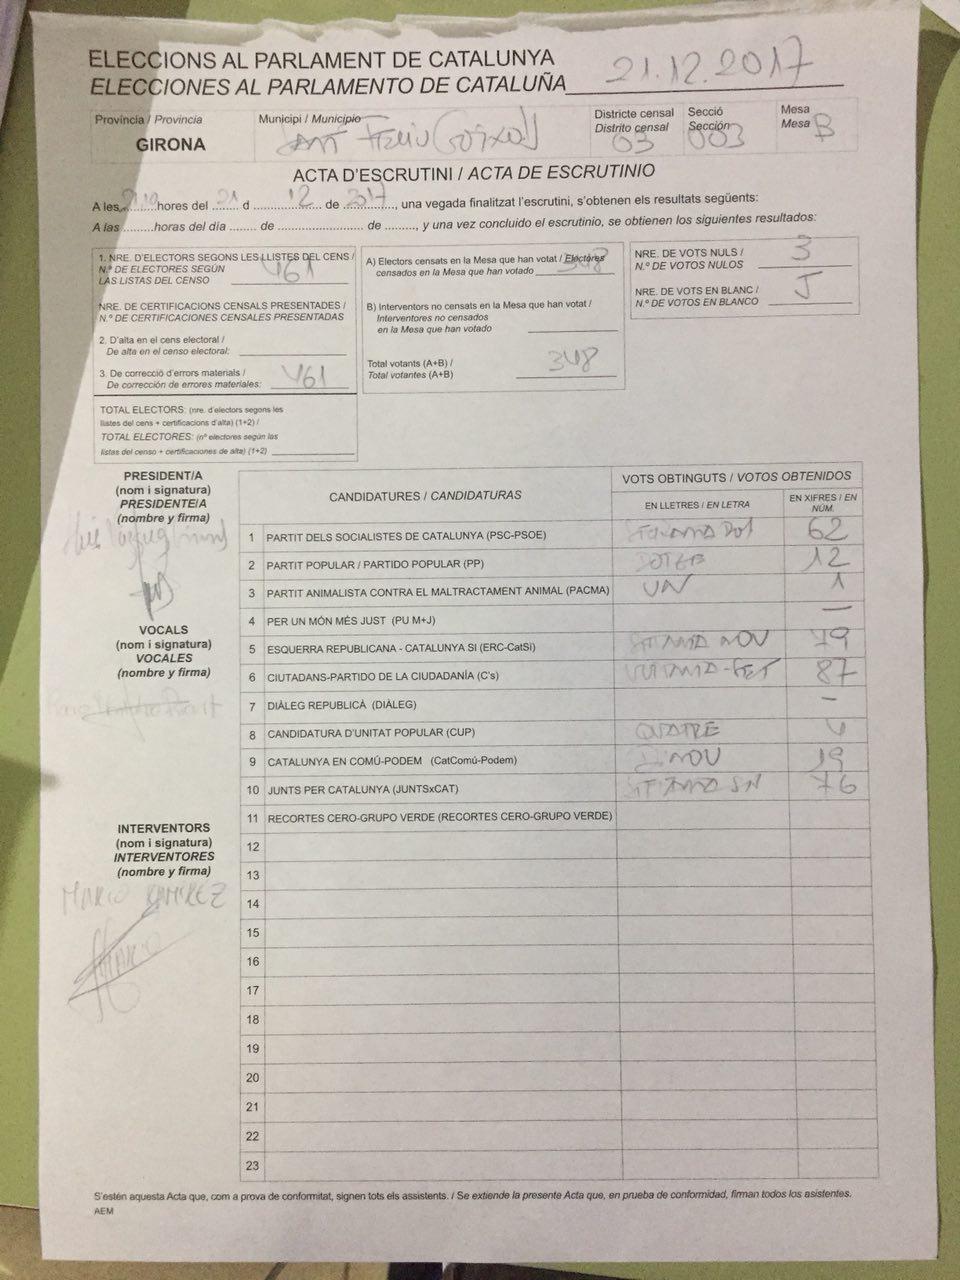 ELECCIONS AL PARLAMENT DE CATALUNYA
ELECCIONES AL PARLAMENTO DE CATALUÑA 21.12.2017
Província / Provincia
GIRONA
Municipi / Municipio
Districte censal
Distrito censal
03
Secció
Sección
003
Mesa
Mesa B
ACTA D'ESCRUTINI / ACTA DE ESCRUTINIO
A les ........ hores del 21 d 12 de 2017, una vegada finalitzat l'escrutini, s'obtenen els resultats següents:
A las ......... horas del día ...... de ........................ de ........., y una vez concluido el escrutinio, se obtienen los siguientes resultados:
1. NRE. D'ELECTORS SEGONS LES LLISTES DEL CENS /
N.º DE ELECTORES SEGÚN
LAS LISTAS DEL CENSO 461
NRE. DE CERTIFICACIONS CENSALS PRESENTADES /
N.º DE CERTIFICACIONES CENSALES PRESENTADAS
2. D'alta en el cens electoral /
De alta en el censo electoral:
3. De correcció d'errors materials /
De corrección de errores materiales: 461
TOTAL ELECTORS: (nre. d'electors segons les
llistes del cens + certificacions d'alta) (1+2) /
TOTAL ELECTORES: (nº electores según las
listas del censo + certificaciones de alta) (1+2)
A) Electors censats en la Mesa que han votat / Electores
censados en la Mesa que han votado 348
B) Interventors no censats en la Mesa que han votat /
Interventores no censados
en la Mesa que han votado
Total votants (A+B) /
Total votantes (A+B) 348
NRE. DE VOTS NULS /
N.º DE VOTOS NULOS 3
NRE. DE VOTS EN BLANC /
N.º DE VOTOS EN BLANCO
PRESIDENT/A
(nom i signatura)
PRESIDENTE/A
(nombre y firma)
VOCALS
(nom i signatura)
VOCALES
(nombre y firma)
INTERVENTORS
(nom i signatura)
INTERVENTORES
(nombre y firma)
MARIO RAMIREZ
CANDIDATURES / CANDIDATURAS
VOTS OBTINGUTS / VOTOS OBTENIDOS
EN LLETRES / EN LETRA
EN XIFRES / EN NÚM.
1 PARTIT DELS SOCIALISTES DE CATALUNYA (PSC-PSOE) 62
2 PARTIT POPULAR / PARTIDO POPULAR (PP) 12
3 PARTIT ANIMALISTA CONTRA EL MALTRACTAMENT ANIMAL (PACMA) UN 1
4 PER UN MÓN MÉS JUST (PU M+J) —
5 ESQUERRA REPUBLICANA - CATALUNYA SI (ERC-CatSi) 79
6 CIUTADANS-PARTIDO DE LA CIUDADANÍA (C's) 87
7 DIÀLEG REPUBLICÀ (DIÀLEG) –
8 CANDIDATURA D'UNITAT POPULAR (CUP) QUATRE 4
9 CATALUNYA EN COMÚ-PODEM (CatComú-Podem) 19
10 JUNTS PER CATALUNYA (JUNTSxCAT) 76
11 RECORTES CERO-GRUPO VERDE (RECORTES CERO-GRUPO VERDE)
12
13
14
15
16
17
18
19
20
21
22
23
S'estén aquesta Acta que, com a prova de conformitat, signen tots els assistents. / Se extiende la presente Acta que, en prueba de conformidad, firman todos los asistentes.
AEM